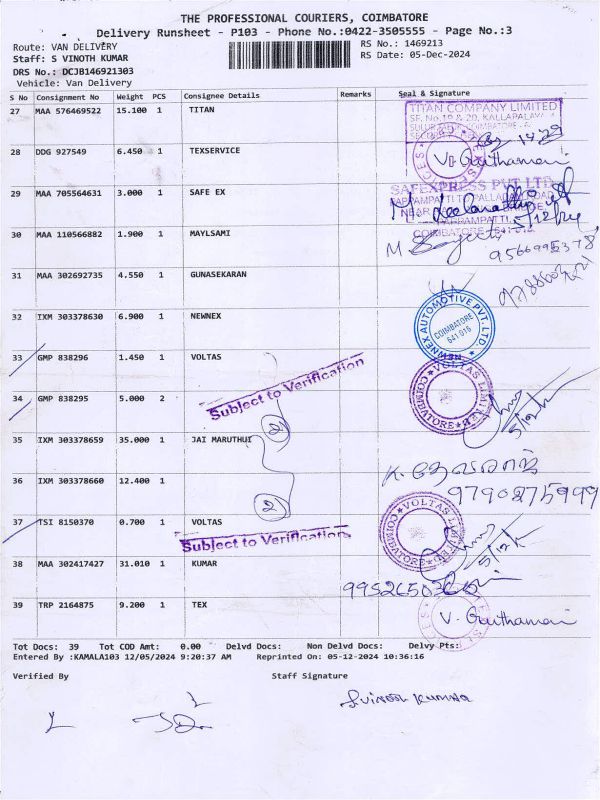 THE PROFESSIONAL COURIERS, COIMBATORE
Delivery Runsheet - P103 - Phone No.:0422-3505555 - Page No.:3
Route: VAN DELIVERY
RS No.: 1469213
Staff: S VINOTH KUMAR
RS Date: 05-Dec-2024
DRS No.: DCJB146921303
Vehicle: Van Delivery
S No Consignment No Weight PCS Consignee Details Remarks Seal & Signature
27 MAA 576469522 15.100 1 TITAN
TITAN COMPANY LIMITED
28 DDG 927549 6.450 1 TEXSERVICE
V. Gauthamani
29 MAA 705564631 3.000 1 SAFE EX
SAFEXPRESS PVT LTD
COIMBATORE - 641 016
30 MAA 110566882 1.900 1 MAYLSAMI
31 MAA 302692735 4.550 1 GUNASEKARAN
32 IXM 303378630 6.900 1 NEWNEX
NEWNEX AUTOMOTIVE PVT. LTD.
COIMBATORE
641 016
33 GMP 838296 1.450 1 VOLTAS
Subject to Verification
VOLTAS LIMITED
COIMBATORE
34 GMP 838295 5.000 2
2
5/12/
35 IXM 303378659 35.000 1 JAI MARUTHUI
36 IXM 303378660 12.400 1
K. தேவராஜ்
9790275999
2
37 TSI 8150370 0.700 1 VOLTAS
Subject to Verification
VOLTAS LIMITED
COIMBATORE
5/12/
38 MAA 302417427 31.010 1 KUMAR
39 TRP 2164875 9.200 1 TEX
V. Gauthamani
Tot Docs: 39 Tot COD Amt: 0.00 Delvd Docs: Non Delvd Docs: Delvy Pts:
Entered By :KAMALA103 12/05/2024 9:20:37 AM Reprinted On: 05-12-2024 10:36:16
Verified By Staff Signature
S Vinoth Kumar